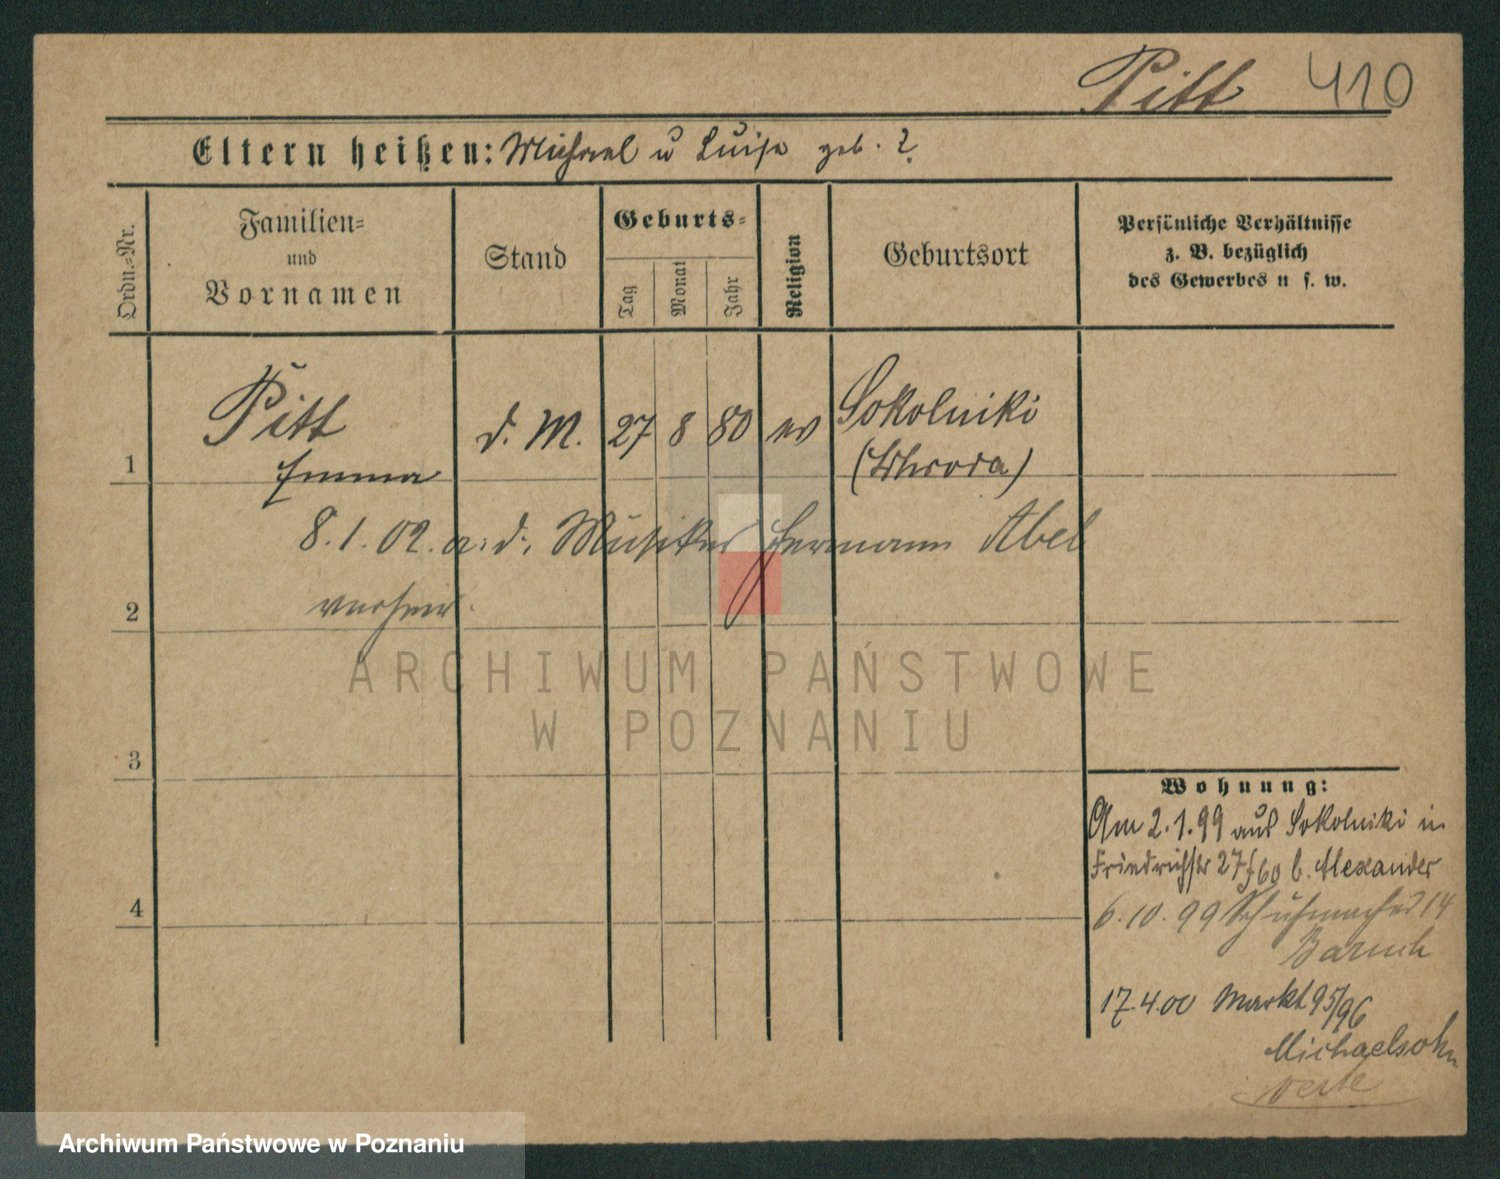 Pitt 410
Eltern heißen: Michael u Luise geb. ?
Ordn.-Nr.
Familien-
und
Vornamen
Stand
Geburts-
Tag
Monat
Jahr
Religion
Geburtsort
Persönliche Verhältnisse
z. B. bezüglich
des Gewerbes u s. w.
Pitt
1 Emma d. M. 27 8 80 ev Sokolniki
8. 1. 02. a. d. Musiker Hermann Abel
2 verheir.
3
4
Wohnung:
Am 2. 1. 99 aus Sokolniki in
Friedrichstr 27/60 b. Alexander
6. 10. 99 Schuhmacher 14
Baruch
17. 4. 00 Markt 95/96
Michaelsohn
verte
ARCHIWUM PAŃSTWOWE
W POZNANIU
Archiwum Państwowe w Poznaniu